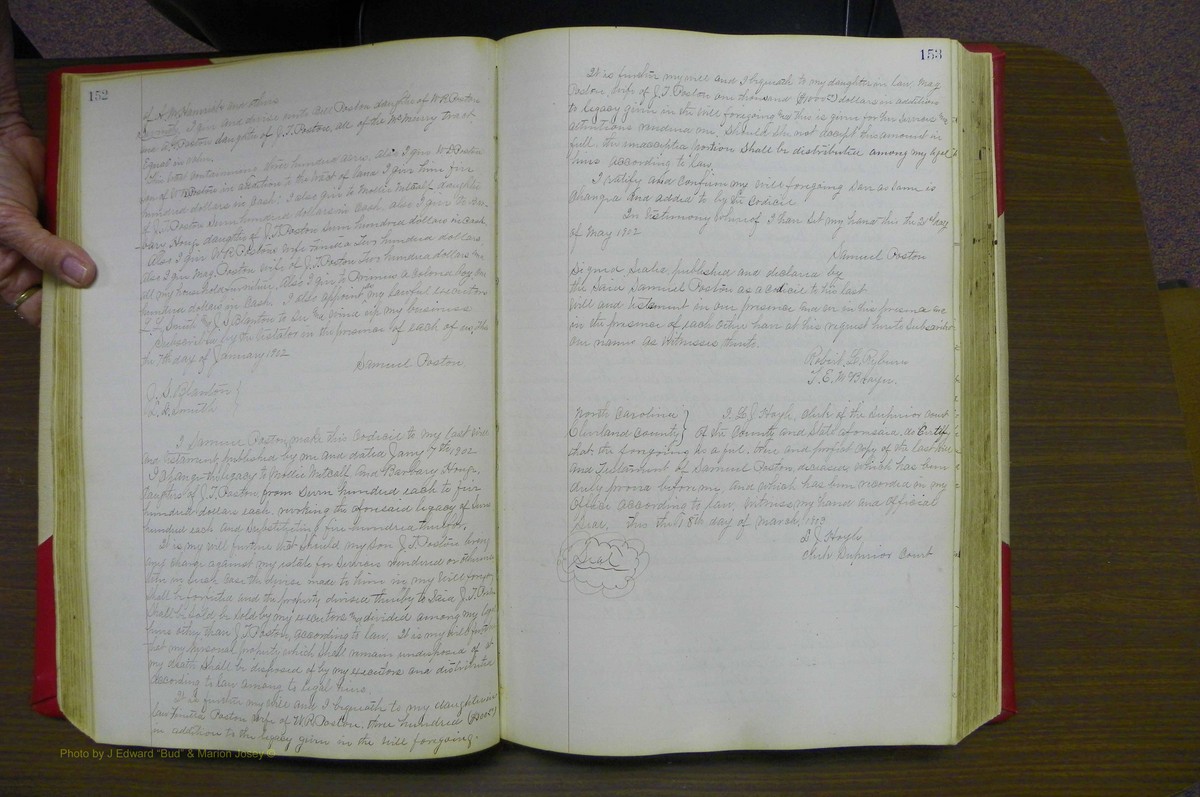 152
of A. M. Hamrick and others
Seventh, I give and devise unto Ause Poston daughter of W R Poston
and A. J. Poston daughter of J. T. Poston, all of the McMurry tract
Equal in when.
This tract containing three hundred acres. Also I give W. Poston
son of W R Poston in addition to the tract of land I give him five
hundred dollars in Cash. I also give to Mollie Metcalf daughter
of J. T. Poston Seven hundred dollars in Cash, also I give to Bar-
bary Hong daughter of J. T. Poston Seven hundred dollars in Cash.
Also I give W. R. Poston's wife Two hundred dollars.
Also I give Mag. Poston wife of J. T. Poston Two hundred dollars and
all my household furniture. Also I give to a Colored boy one
hundred dollars in Cash. I also appoint my lawful Executors
L. S. Smith and J. S. Blanton to and wind up my business
Subscribed by the testator in the presence of each of us, this
the 7th day of January 1902
Samuel Poston
J. S. Blanton }
L. S. Smith
I Samuel Poston, make this Codicil to my last will
and testament published by me and dated Jany 7th 1902
I change the legacy to Mollie Metcalf and Barbary Hong,
daughters of J. T. Poston from Seven hundred each to five
hundred dollars each, revoking the aforesaid legacy of Seven
hundred each and Substituting five hundred therefor.
It is my will further that should my son J. T. Poston bring
any charge against my estate for Services rendered or otherwise
then in such case the devise made to him in my will forego
shall be revoked and the property devised thereby to Said J. T. Poston
Shall be sold by my executors and divided among my legal
heirs other than J. T. Poston, according to law. It is my will further
that my personal property which shall remain undisposed of at
my death shall be disposed of by my executors and distributed
according to law among to legal heirs.
It is further my will and I bequeath to my daughter in
law Poston wife of W. R. Poston, three hundred ($300.00)
in addition to the legacy given in the will foregoing.
153
It is further my will and I bequeath to my daughter in law, Mag
Poston, wife of J. T. Poston one thousand ($1000.00) dollars in addition
to legacy given in the will foregoing and this is given for her services and
attentions rendered me. Should she not accept this amount in
full, the unaccepted portion Shall be distributed among my legal
heirs according to law.
I ratify and confirm my will foregoing Save as Same is
changed and added to by the codicil
In testimony whereof I have set my hand this the 21st day
of May 1902
Samuel Poston
Signed Sealed published and declared by
the Said Samuel Poston as a codicil to his last
will and testament in our presence and we in his presence and
in the presence of each other have at his request hereto Subscribed
our names as witnesses thereto.
Robert L. Ryburn
T. E. McBrayer.
North Carolina } I, L J Hoyle, Clerk of the Superior Court
Cleveland County } of the County and State aforesaid, do Certify
that the foregoing is a full, true and perfect Copy of the last Will
and Testament of Samuel Poston, deceased, which has been
duly proven before me, and which has been recorded in my
Office according to law. Witness my hand and official
Seal. This the 18th day of March, 1903
L J Hoyle,
Clerk Superior Court
Seal
Photo by J Edward "Bud" & Marion Josey ©